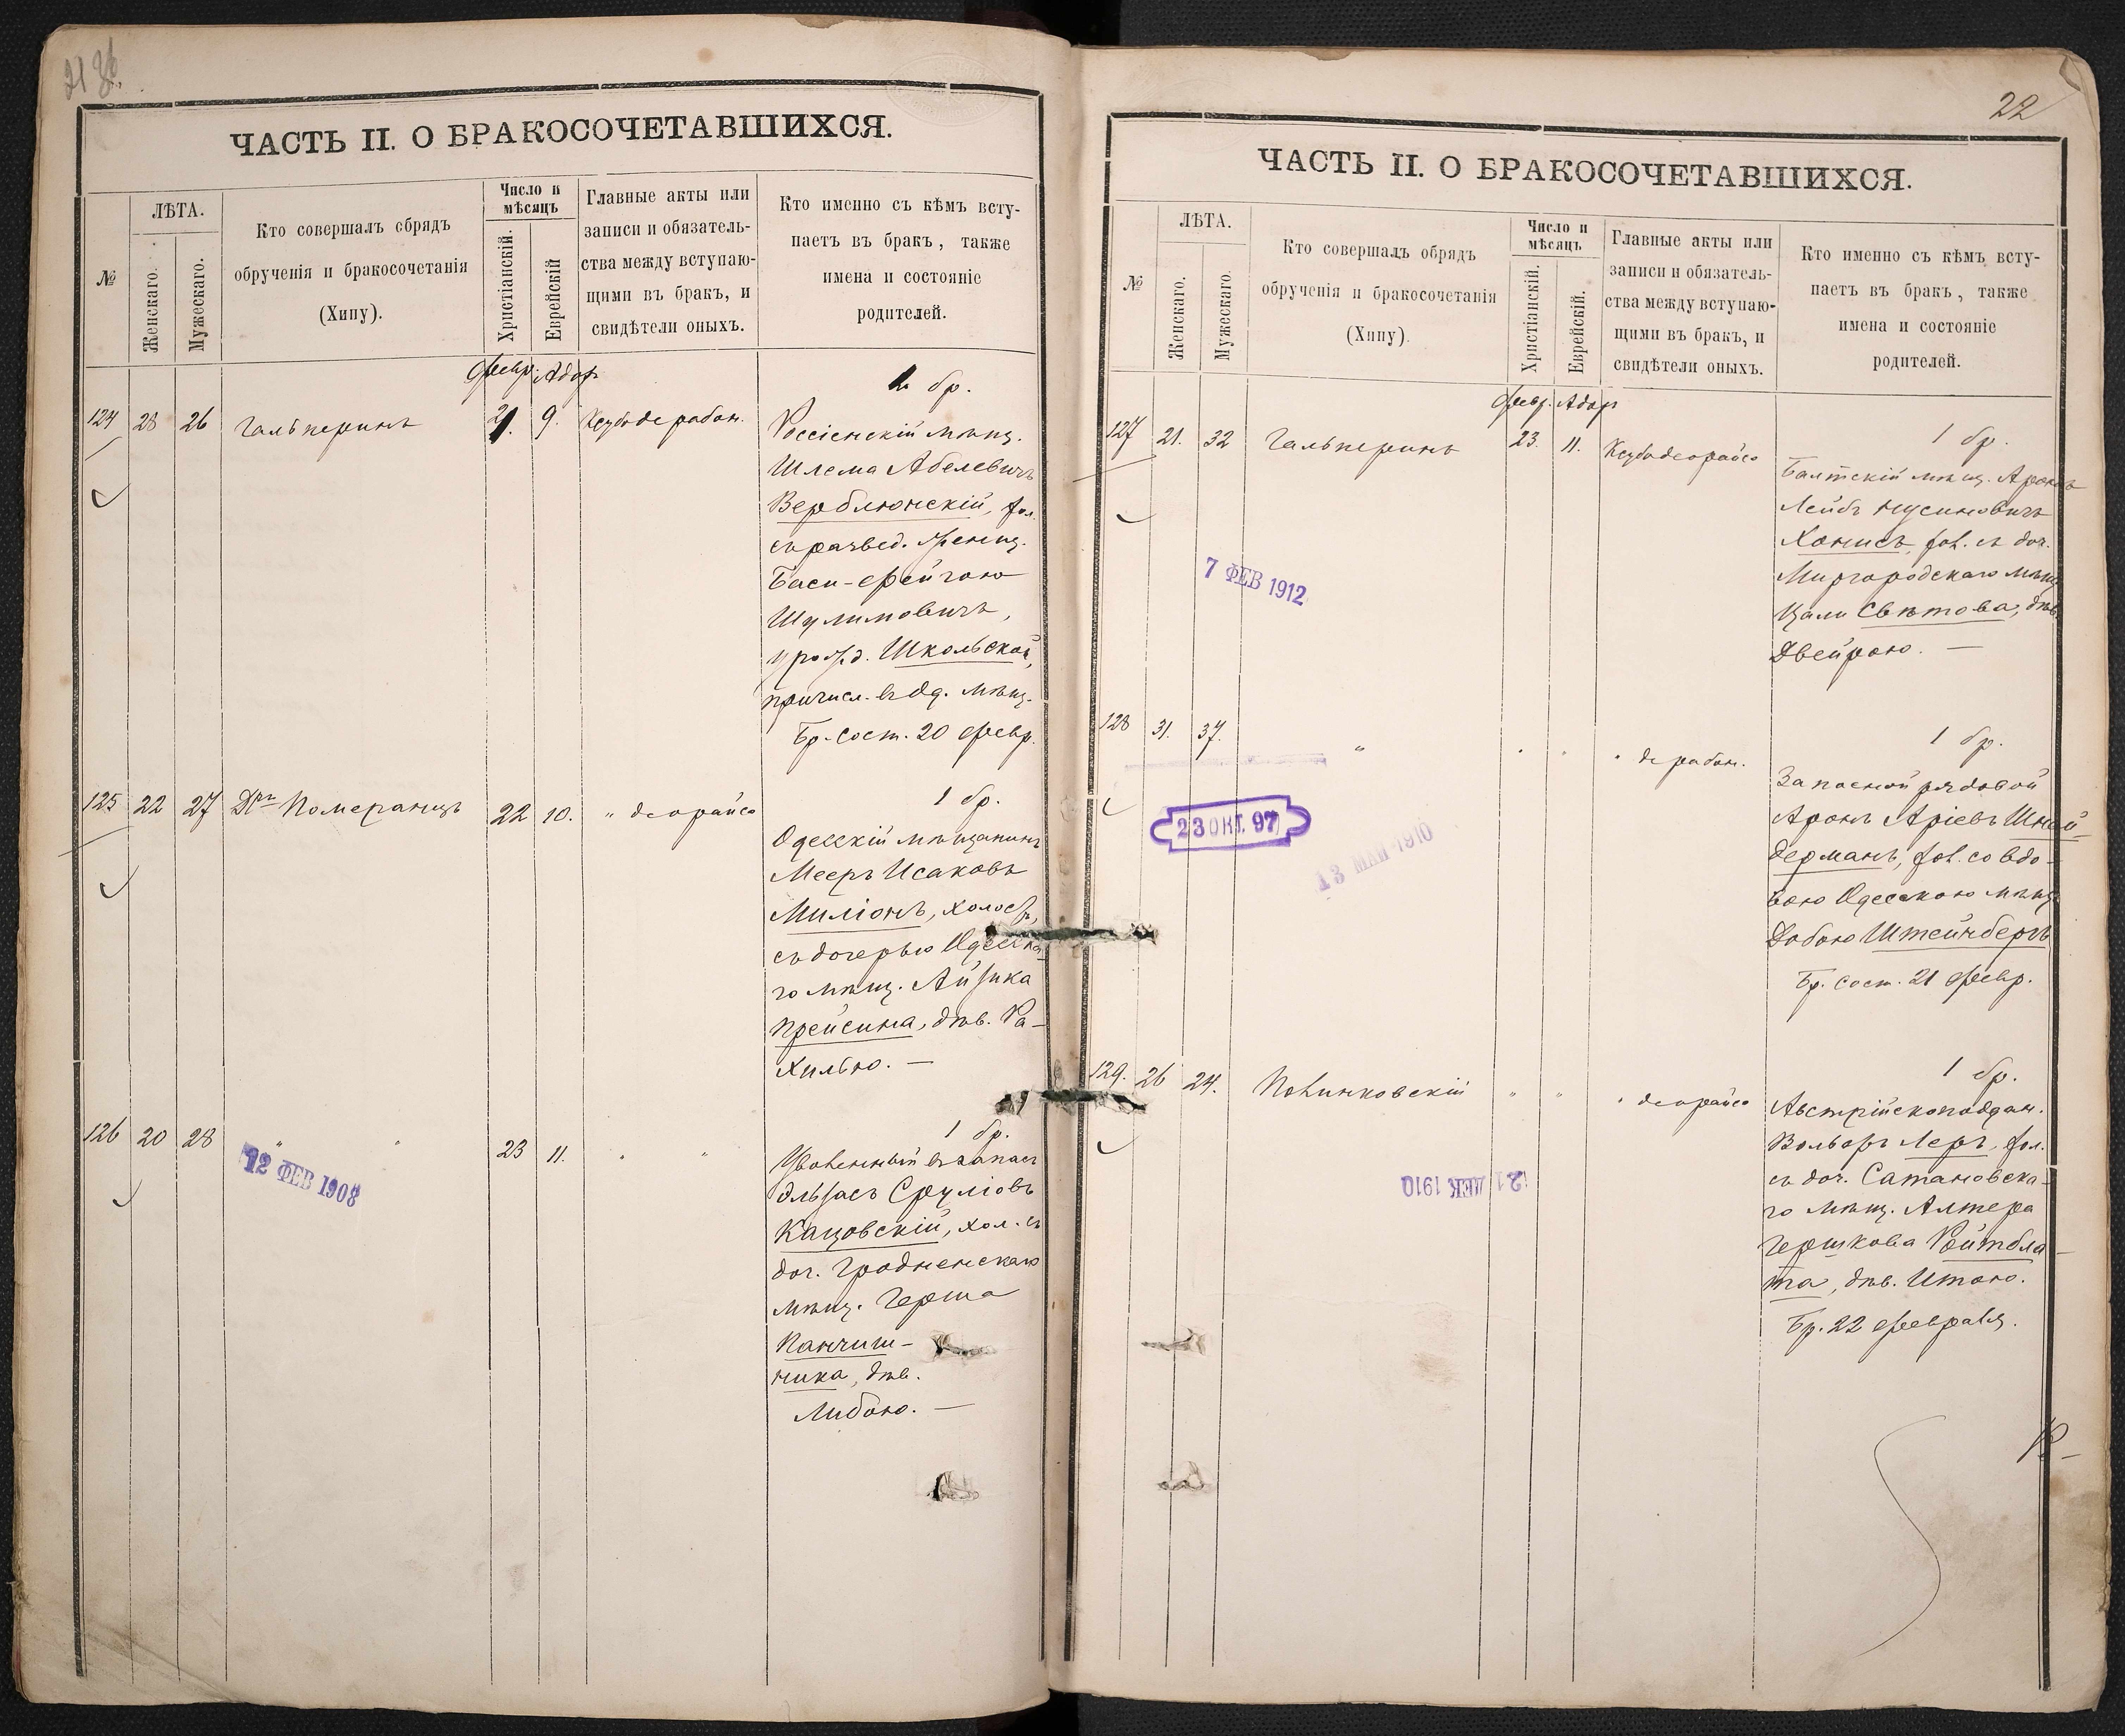 ЧАСТЬ II. О БРАКОСОЧЕТАВШИХСЯ.
№
ЛѢТА.
Женскаго.
Мужескаго.
Кто совершалъ обрядъ
обрученія и бракосочетанія
(Хипу).
Число и
мѣсяцъ
Христіанскій.
Еврейскій
Главные акты или
записи и обязатель-
ства между вступаю-
щими въ бракъ, и
свидѣтели оныхъ.
Кто именно съ кѣмъ всту-
паетъ въ бракъ, также
имена и состояніе
родителей.
Февр. Адоръ
124 28 26 Гальперинъ 21. 9. Ксубо де рабон.
бр.
Россіенскій мѣщ.
Шлема Абелевичъ
Верблюнскій, хол.
съ развед. женщ.
Баси-Фейгою
Шулимовичъ,
урожд. Школьской,
причисл. въ Од. мѣщ.
Бр. сост. 20 февр.
125 22 27 Дръ Померанцъ 22 10. " деорайсо
1 бр.
Одесскій мѣщанинъ
Мееръ Исаковъ
Миліонъ, холост,
съ дочерью Одесска-
го мѣщ. Айзика
Прейсина, дѣв. Ра-
хилью. —
126 20 28 " " 23 11. " "
12 ФЕВ 1908
1 бр.
Уволенный въ запасъ
Эльзасъ Сруліовъ
Кацовскій, хол. съ
доч. Гродненскаго
мѣщ. Герша
Панчиш-
ника, дѣв.
Либою. —
22
ЧАСТЬ II. О БРАКОСОЧЕТАВШИХСЯ.
№
ЛѢТА.
Женскаго.
Мужескаго.
Кто совершалъ обрядъ
обрученія и бракосочетанія
(Хипу).
Число и
мѣсяцъ
Христіанскій.
Еврейскій.
Главные акты или
записи и обязатель-
ства между вступаю-
щими въ бракъ, и
свидѣтели оныхъ.
Кто именно съ кѣмъ всту-
паетъ въ бракъ, также
имена и состояніе
родителей.
Февр. Адоръ
127 21. 32 Гальперинъ 23. 11. Ксубо деорайсо
7 ФЕВ 1912
1 бр.
Балтскій мѣщ. Аронъ
Лейбъ Нусиновичъ
Хонисъ, хол. съ доч.
Миргородскаго мѣщ.
Цали Свѣтова, дѣв.
Двейрою. —
128 31. 37. " " " " де рабон.
23 ОКТ. 97
13 МАЙ 1910
1 бр.
Запасной рядовой
Аронъ Аріевъ Шней-
дерманъ, хол. со вдо-
вою Одесскою мѣщ.
Добою Штейнбергъ
Бр. сост. 21 февр.
129. 26 24. Повинковскій " " " деорайсо
21 ДЕК 1910
1 бр.
Австрійскоподдан.
Вольфъ Леръ, хол.
съ доч. Сатановска-
го мѣщ. Алтера
Гершкова Ройтбла-
та, дѣв. Итою.
Бр. 22 февраля.